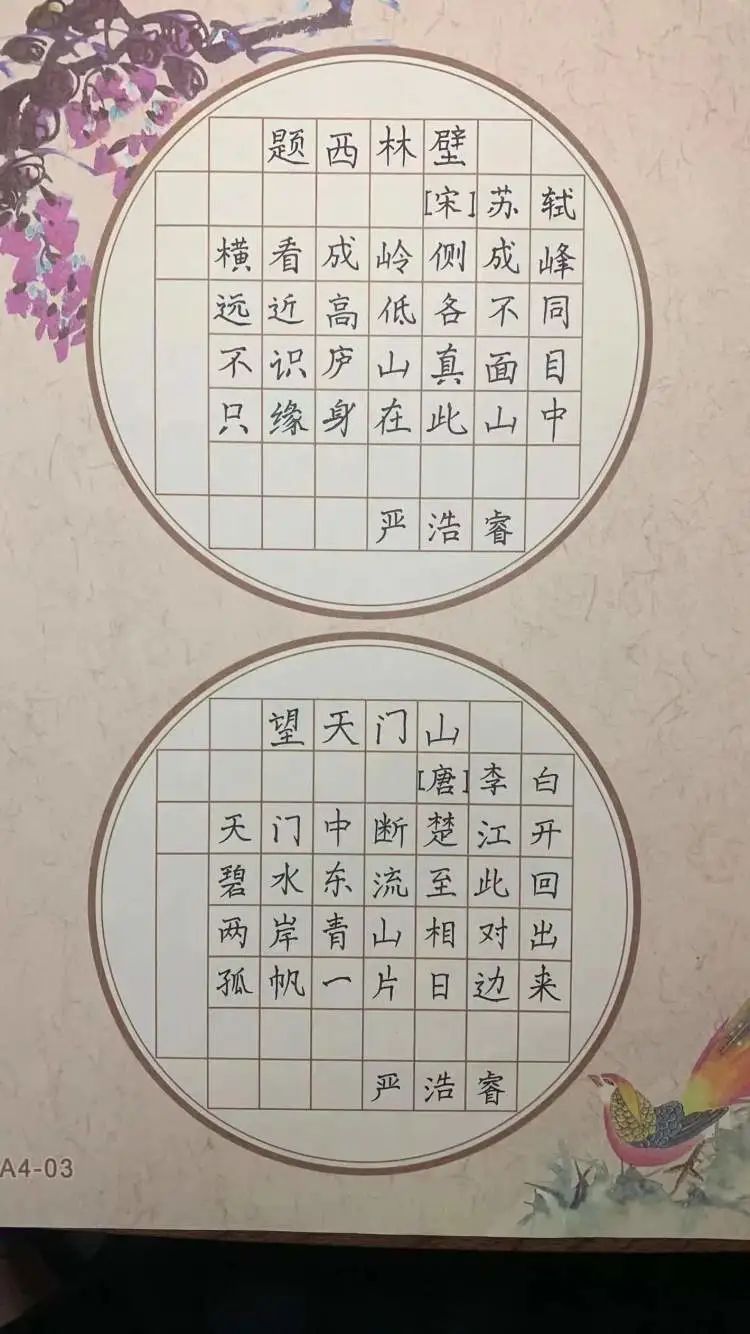 题西林壁
[宋]苏轼
横看成岭侧成峰
远近高低各不同
不识庐山真面目
只缘身在此山中
严浩睿
望天门山
[唐]李白
天门中断楚江开
碧水东流至此回
两岸青山相对出
孤帆一片日边来
严浩睿
A4-03